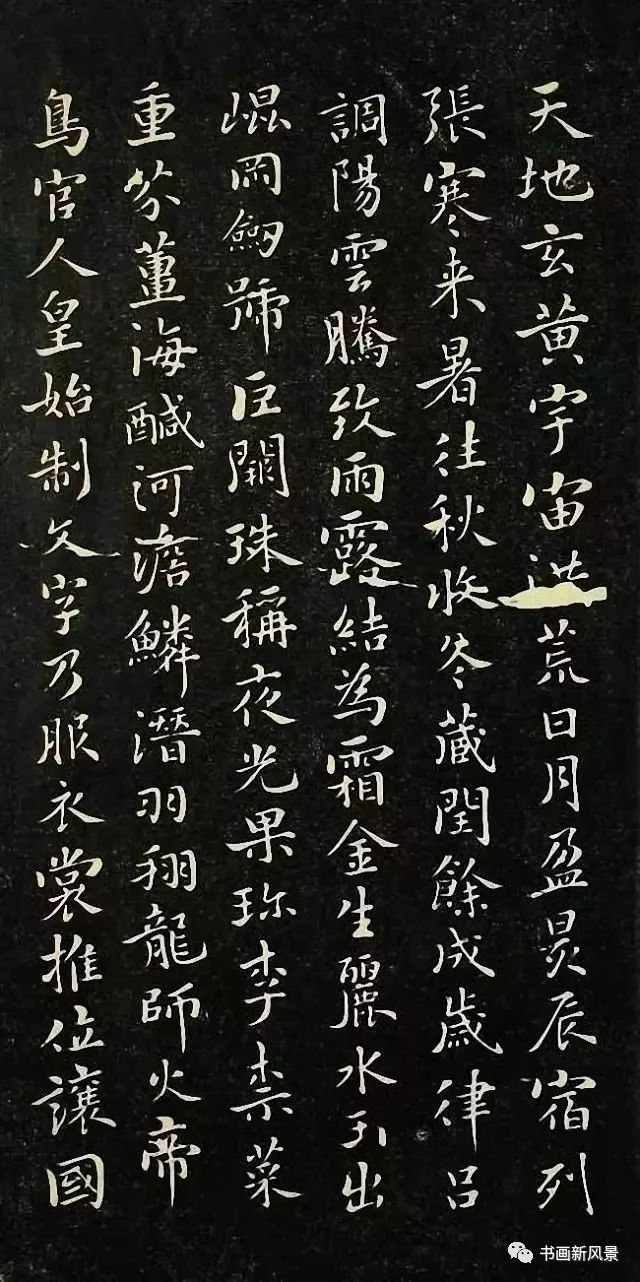 天地玄黄宇宙洪荒日月盈昃辰宿列
張寒来暑往秋收冬蔵閏餘成歲律吕
調陽雲騰致雨露結為霜金生麗水玉出
崐岡劒號巨闕珠稱夜光果珎李柰菜
重芥薑海醎河澹鱗潛羽翔龍師火帝
鳥官人皇始制文字乃服衣裳推位讓國
书画新风景